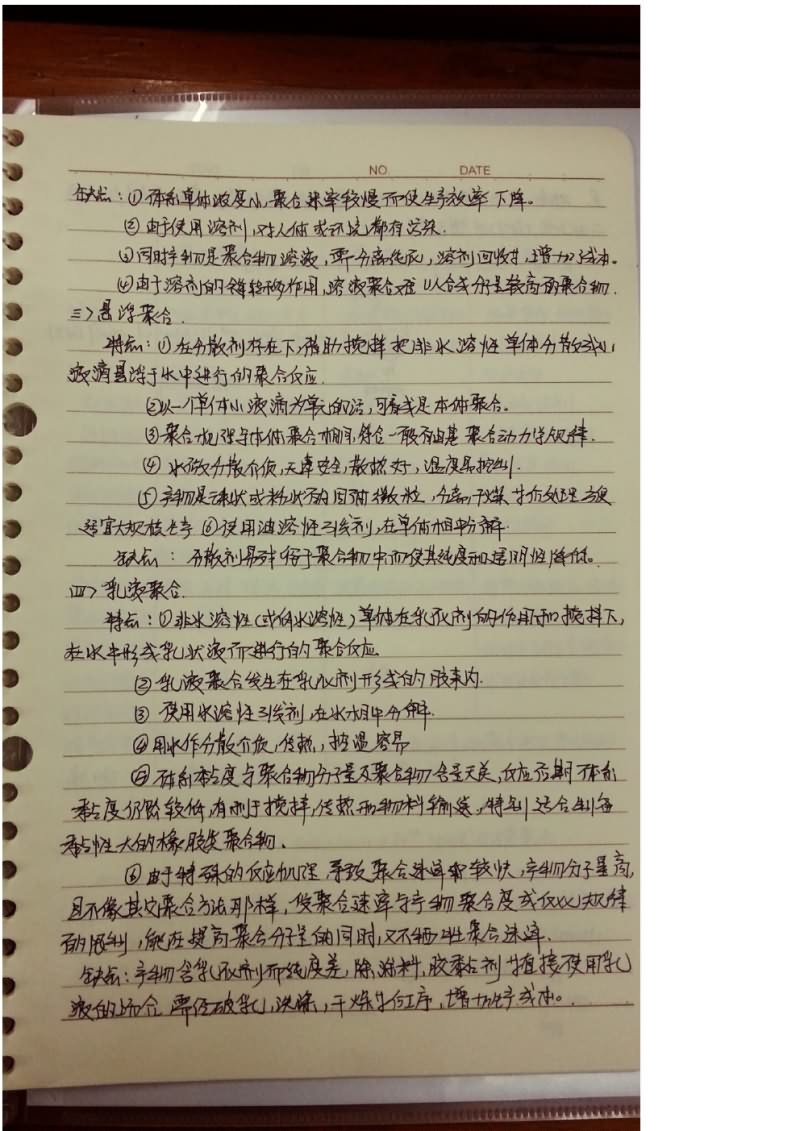 NO. DATE
缺点：①体系单体浓度小，聚合速率较慢而使生产效率下降。
②由于使用溶剂，对人体或环境都有污染.
③同时产物是聚合物溶液，要分离纯化，溶剂回收等，增加成本。
④由于溶剂的链转移作用，溶液聚合难以合成分子量较高的聚合物.
三>悬浮聚合.
特点：①在分散剂存在下，借助搅拌把非水溶性单体分散成小
液滴悬浮于水中进行的聚合反应.
②以一个单体小液滴为单元的话，可看成是本体聚合。
③聚合机理与本体聚合相同，符合一般自由基聚合动力学规律.
④水做分散介质，无毒安全，散热好，温度易控制.
⑤产物是珠状或粉状的固体微粒，分离干燥等后处理方便
适宜大规模生产 ⑥使用油溶性引发剂，在单体相中分解.
缺点：分散剂易残留于聚合物中而使其纯度和透明性降低。
四>乳液聚合.
特点：①非水溶性(或低水溶性)单体在乳化剂的作用和搅拌下，
在水中形成乳状液而进行的聚合反应
②乳液聚合发生在乳化剂形成的胶束内.
③使用水溶性引发剂，在水相中分解.
④用水作分散介质，传热，控温容易
⑤体系黏度与聚合物分子量及聚合物含量无关，反应后期体系
黏度仍然较低，有利于搅拌，传热和物料输送，特别适合制备
黏性大的橡胶类聚合物.
⑥由于特殊的反应机理，导致聚合速率较快，产物分子量高，
且不像其它聚合方法那样，受聚合速率与产物聚合度成反比规律
的限制，能在提高聚合分子量的同时，又不牺牲聚合速率.
缺点：产物含乳化剂而纯度差，除涂料，胶黏剂等直接使用乳
液的场合 要经破乳，洗涤，干燥等工序，增加生产成本。